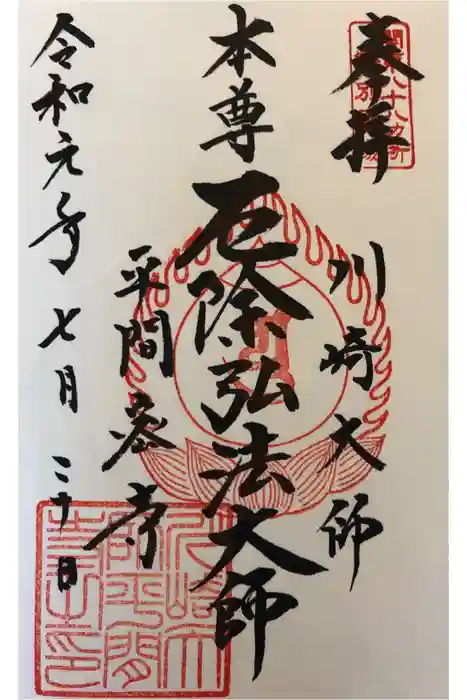 奉拝
関東八十八カ所
特別霊場
川崎大師
本尊 厄除弘法大師
平間寺
令和元年 七月 二十日